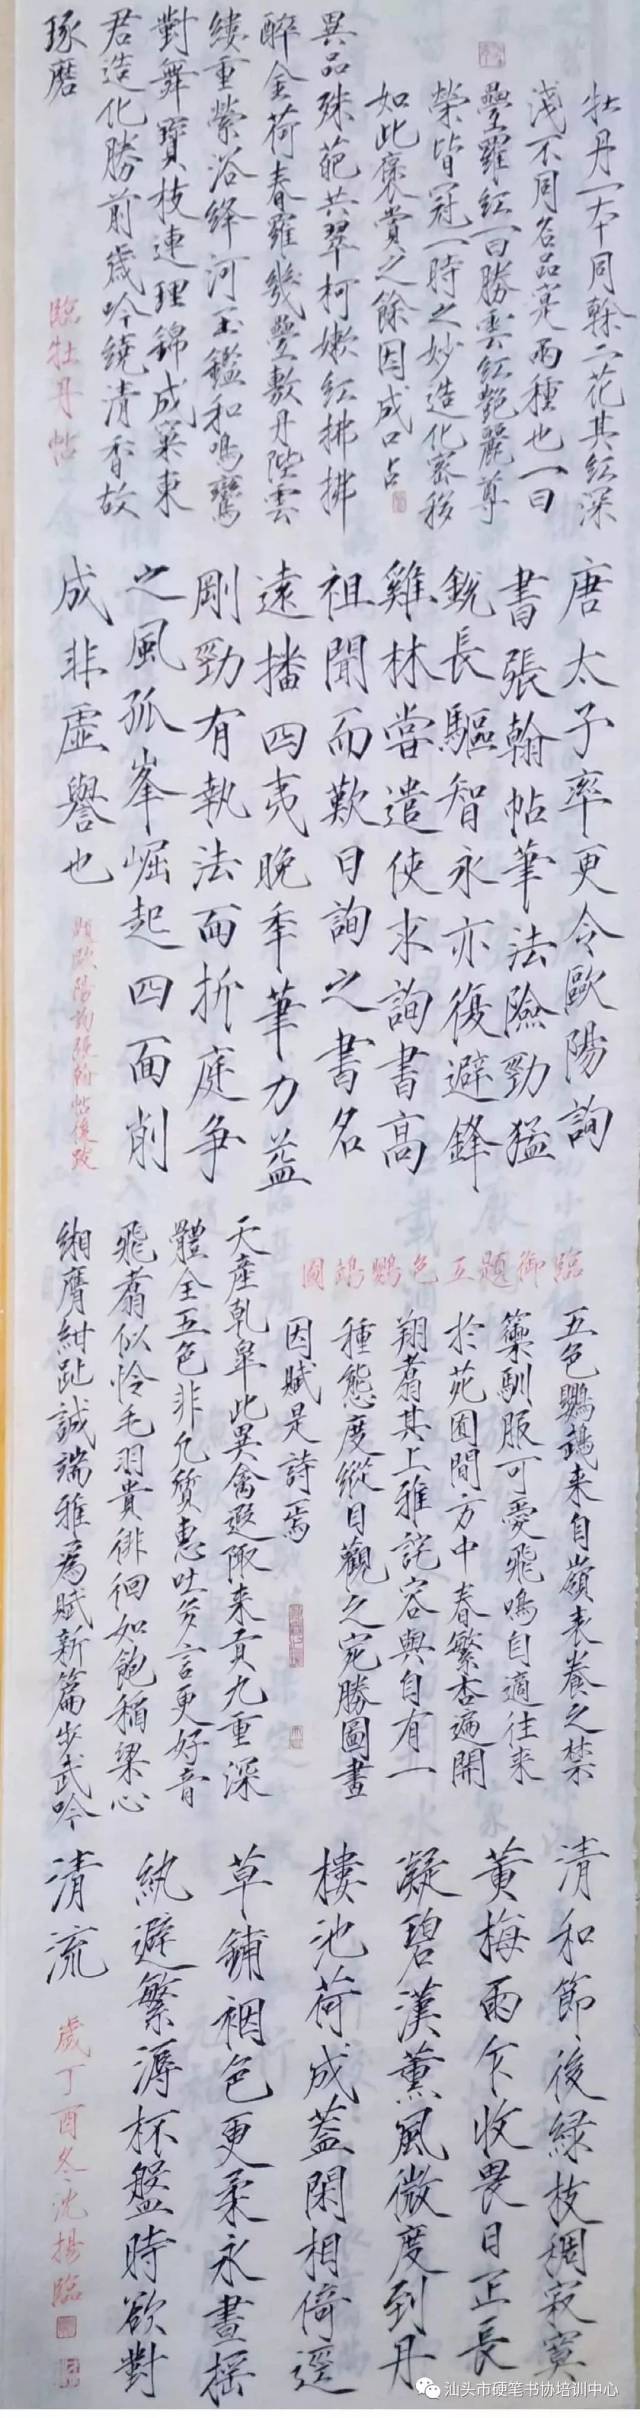 牡丹一本同榦二花其紅深
淺不同名品寔兩種也一曰
疊羅紅一曰勝雲紅艷麗尊
榮皆冠一時之妙造化密移
如此褒賞之餘因成口占
異品殊葩共翠柯嫩紅拂拂
醉金荷春羅幾疊敷丹陛雲
縷重縈浴絳河玉鑑和鳴鸞
對舞寶枝連理錦成窠東
君造化勝前歲吟繞清香故
琢磨
臨牡丹帖
唐太子率更令歐陽詢
書張翰帖筆法險勁猛
銳長驅智永亦復避鋒
雞林嘗遣使求詢書高
祖聞而歎曰詢之書名
遠播四夷晚年筆力益
剛勁有執法面折庭爭
之風孤峯崛起四面削
成非虛譽也
題歐陽詢張翰帖後跋
臨御題五色鸚鵡圖
五色鸚鵡来自嶺表養之禁
籞馴服可愛飛鳴自適往来
於苑囿間方中春繁杏遍開
翔翥其上雅詫容與自有一
種態度縱目觀之宛勝圖畫
因賦是詩焉
天產乾皐此異禽遐陬来貢九重深
體全五色非凡質惠吐多言更好音
飛翥似怜毛羽貴徘徊如飽稻粱心
緗膺紺趾誠端雅為賦新篇步武吟
清和節後緑枝稠寂寞
黄梅雨乍收畏日正長
凝碧漢薰風微度到丹
樓池荷成蓋閑相倚逕
草鋪裀色更柔永晝摇
紈避繁溽杯盤時欲對
清流
歲丁酉冬沈揚臨
汕头市硬笔书协培训中心